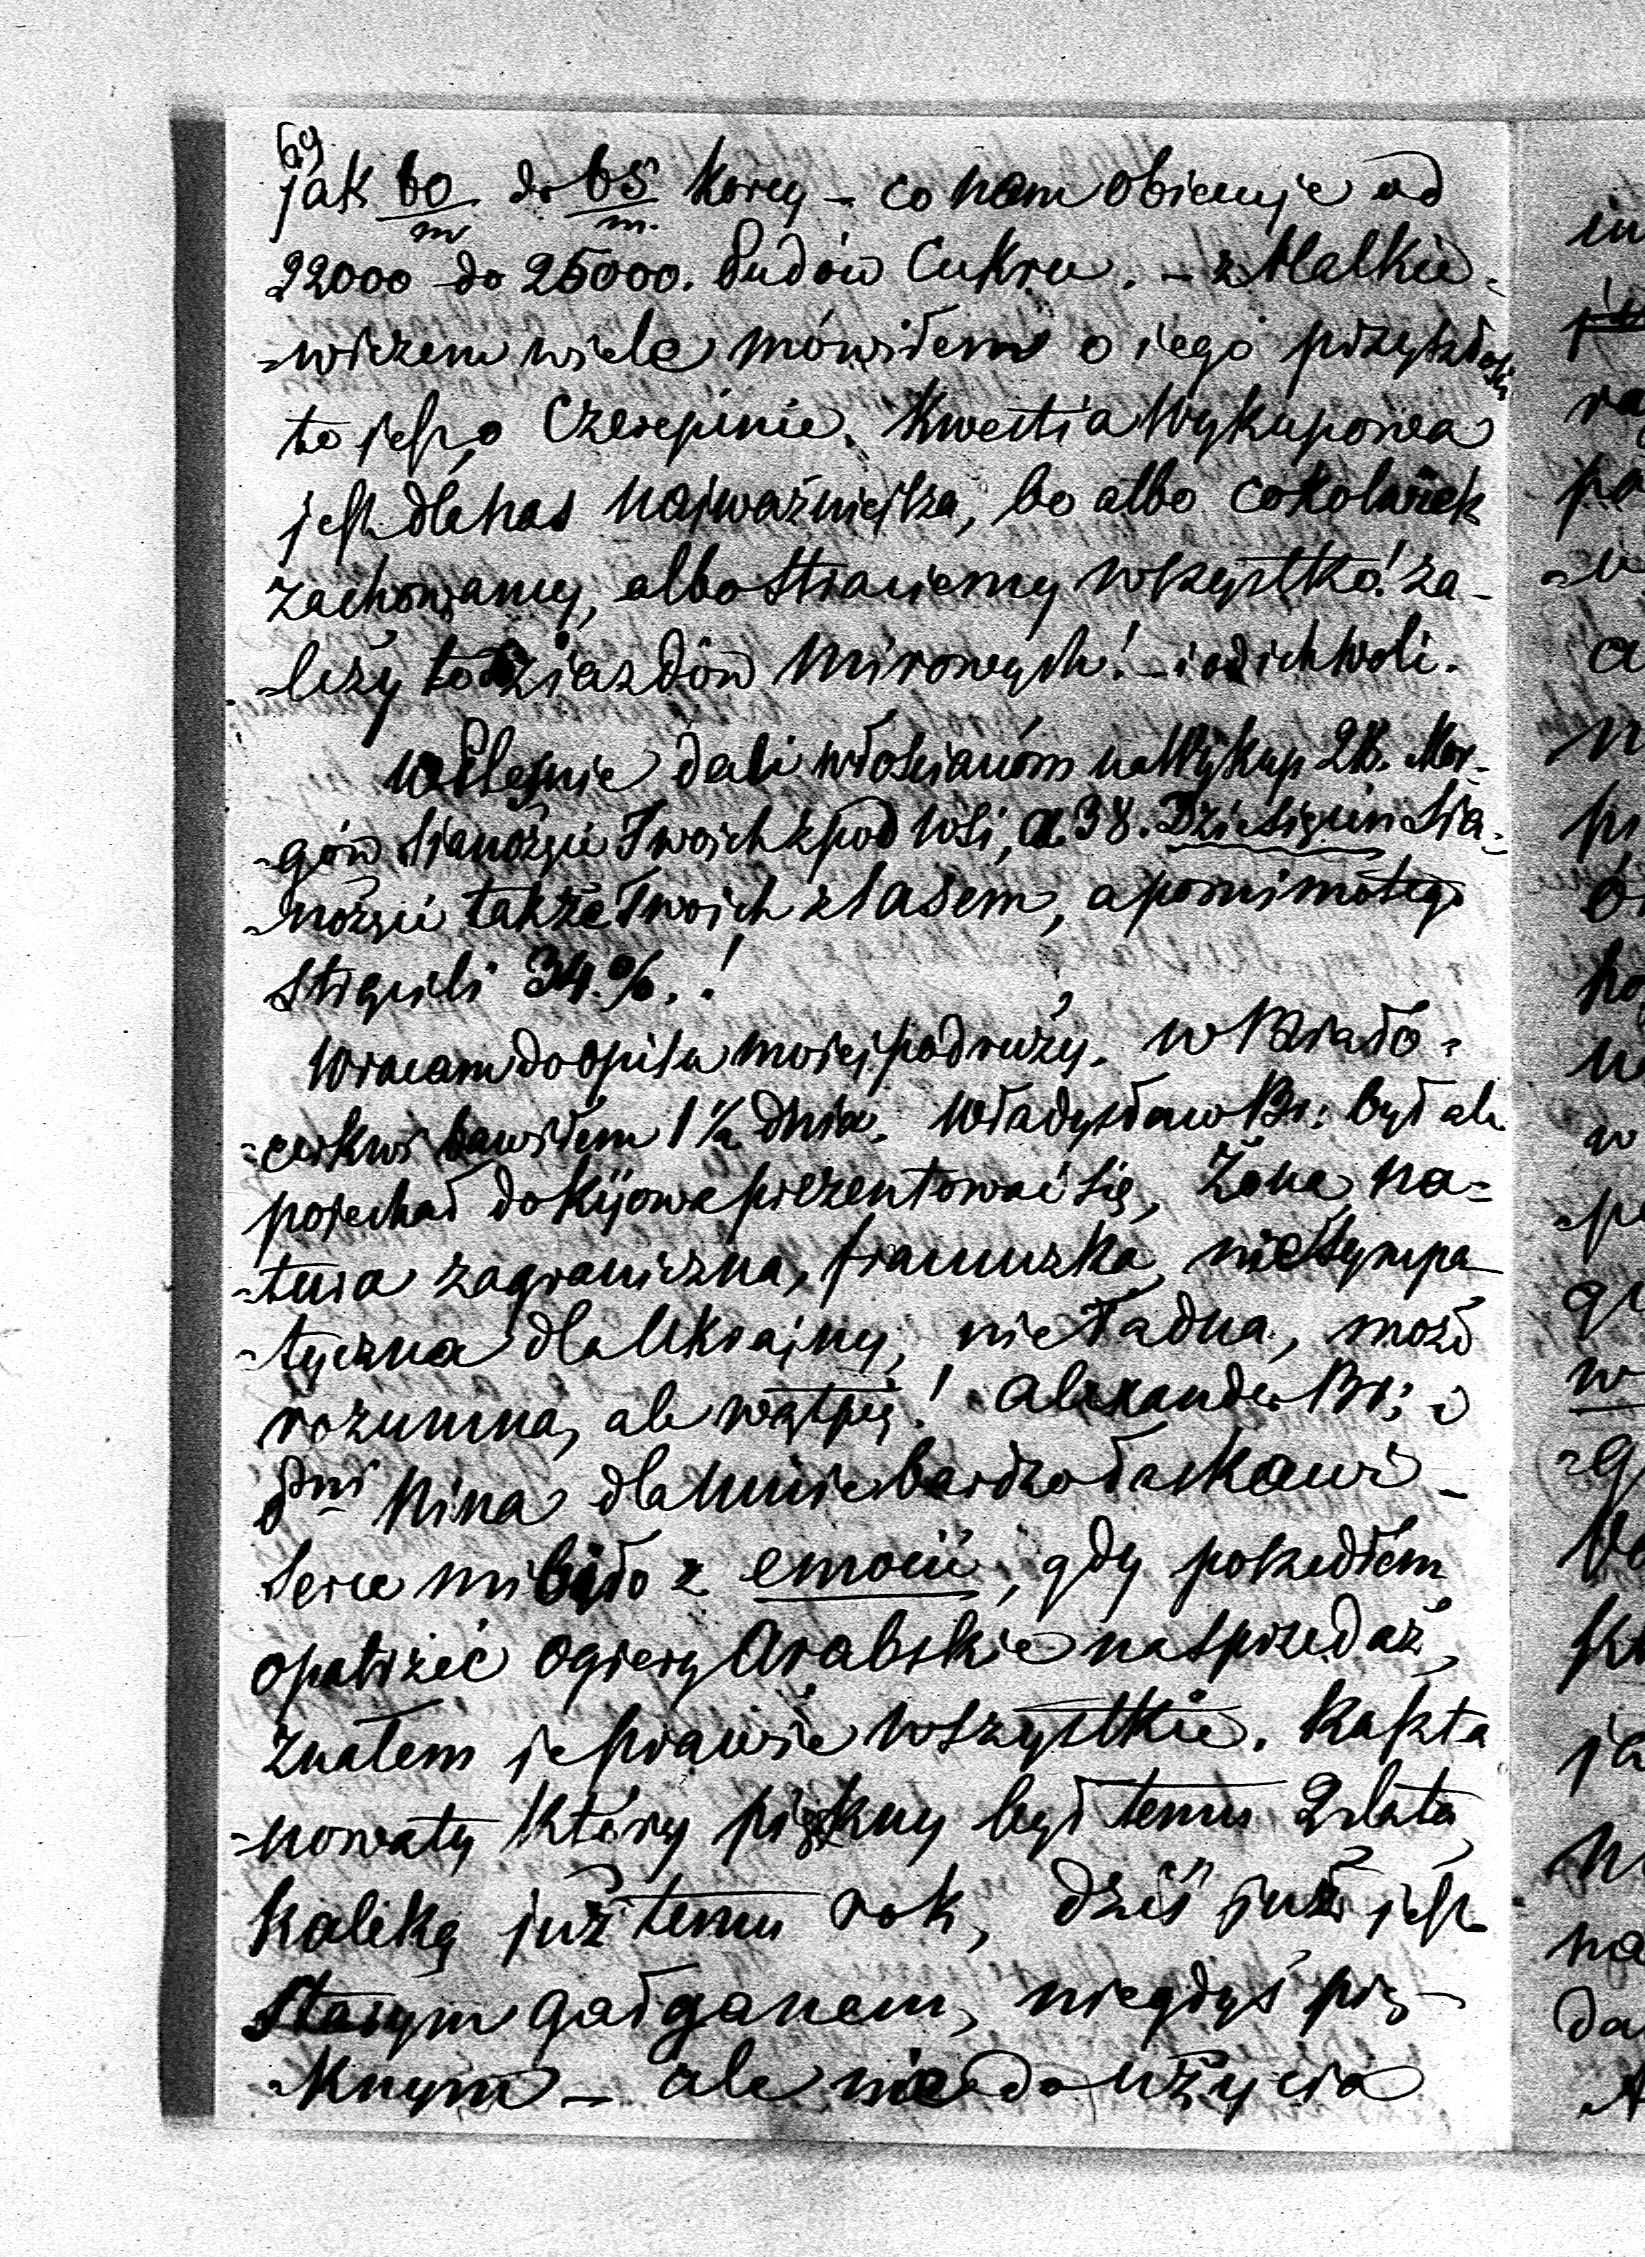 69
jak 60/m do 65/m. korcy – co nam obiecuje od
22000 do 25000. Pudów Cukru. – z Malkie-
-wiczem wiele mówiłem o iego przyszłości
to jest o Czerepinie. Kwestia Wykupowa
jest dla nas najważniejsza, bo albo cokolwiek
zachowamy, albo straciemy wszystko! za-
-leży to od ziazdów Mirowych! – i od ich woli.
dali włościanom na Wykup 28. Mor-
-gów Sianożęci Twoich z pod wsi, a 38. Dziesięcin Sia-
-nożęci także Twoich z lasem, a pomimo tego
strącili 34.%.!
Wracam do opisu moiej podróży. w Biało-
-cerkwi bawiłem 1 ½ dnia. Władysław Br: był ale
pojechał do Kijowa prezentować się, Żona, na-
-tura zagraniczna, francuzka, nie sympa-
-tyczna dla Ukrajny, nie ładna, może
rozumna, ale wątpię! Alexander Br: i
Pni Nina dla mnie bardzo łaskawi –
Serce mi biło z emocii, gdy poszedłem
opatrzéć ogiery Arabskie na sprzedaż,
znałem je prawie wszystkie. Kaszta
-nowaty który piękny był temu 2 lata,
kaliką już temu rok, dziś już jest
starym gałganem, niegdyś pię-
-knym – ale nie do użycia